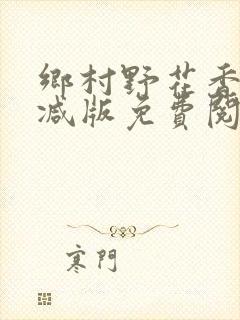 鄉村野花香
减版免費閱
寒門